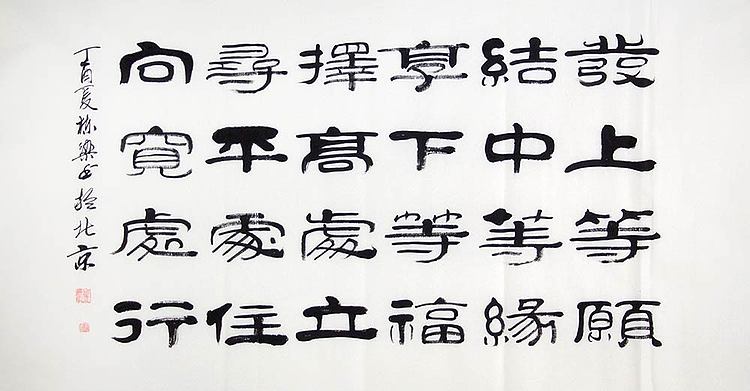 發上等願
結中等緣
享下等福
擇高處立
尋平處住
向寬處行
丁酉夏栋梁书于北京